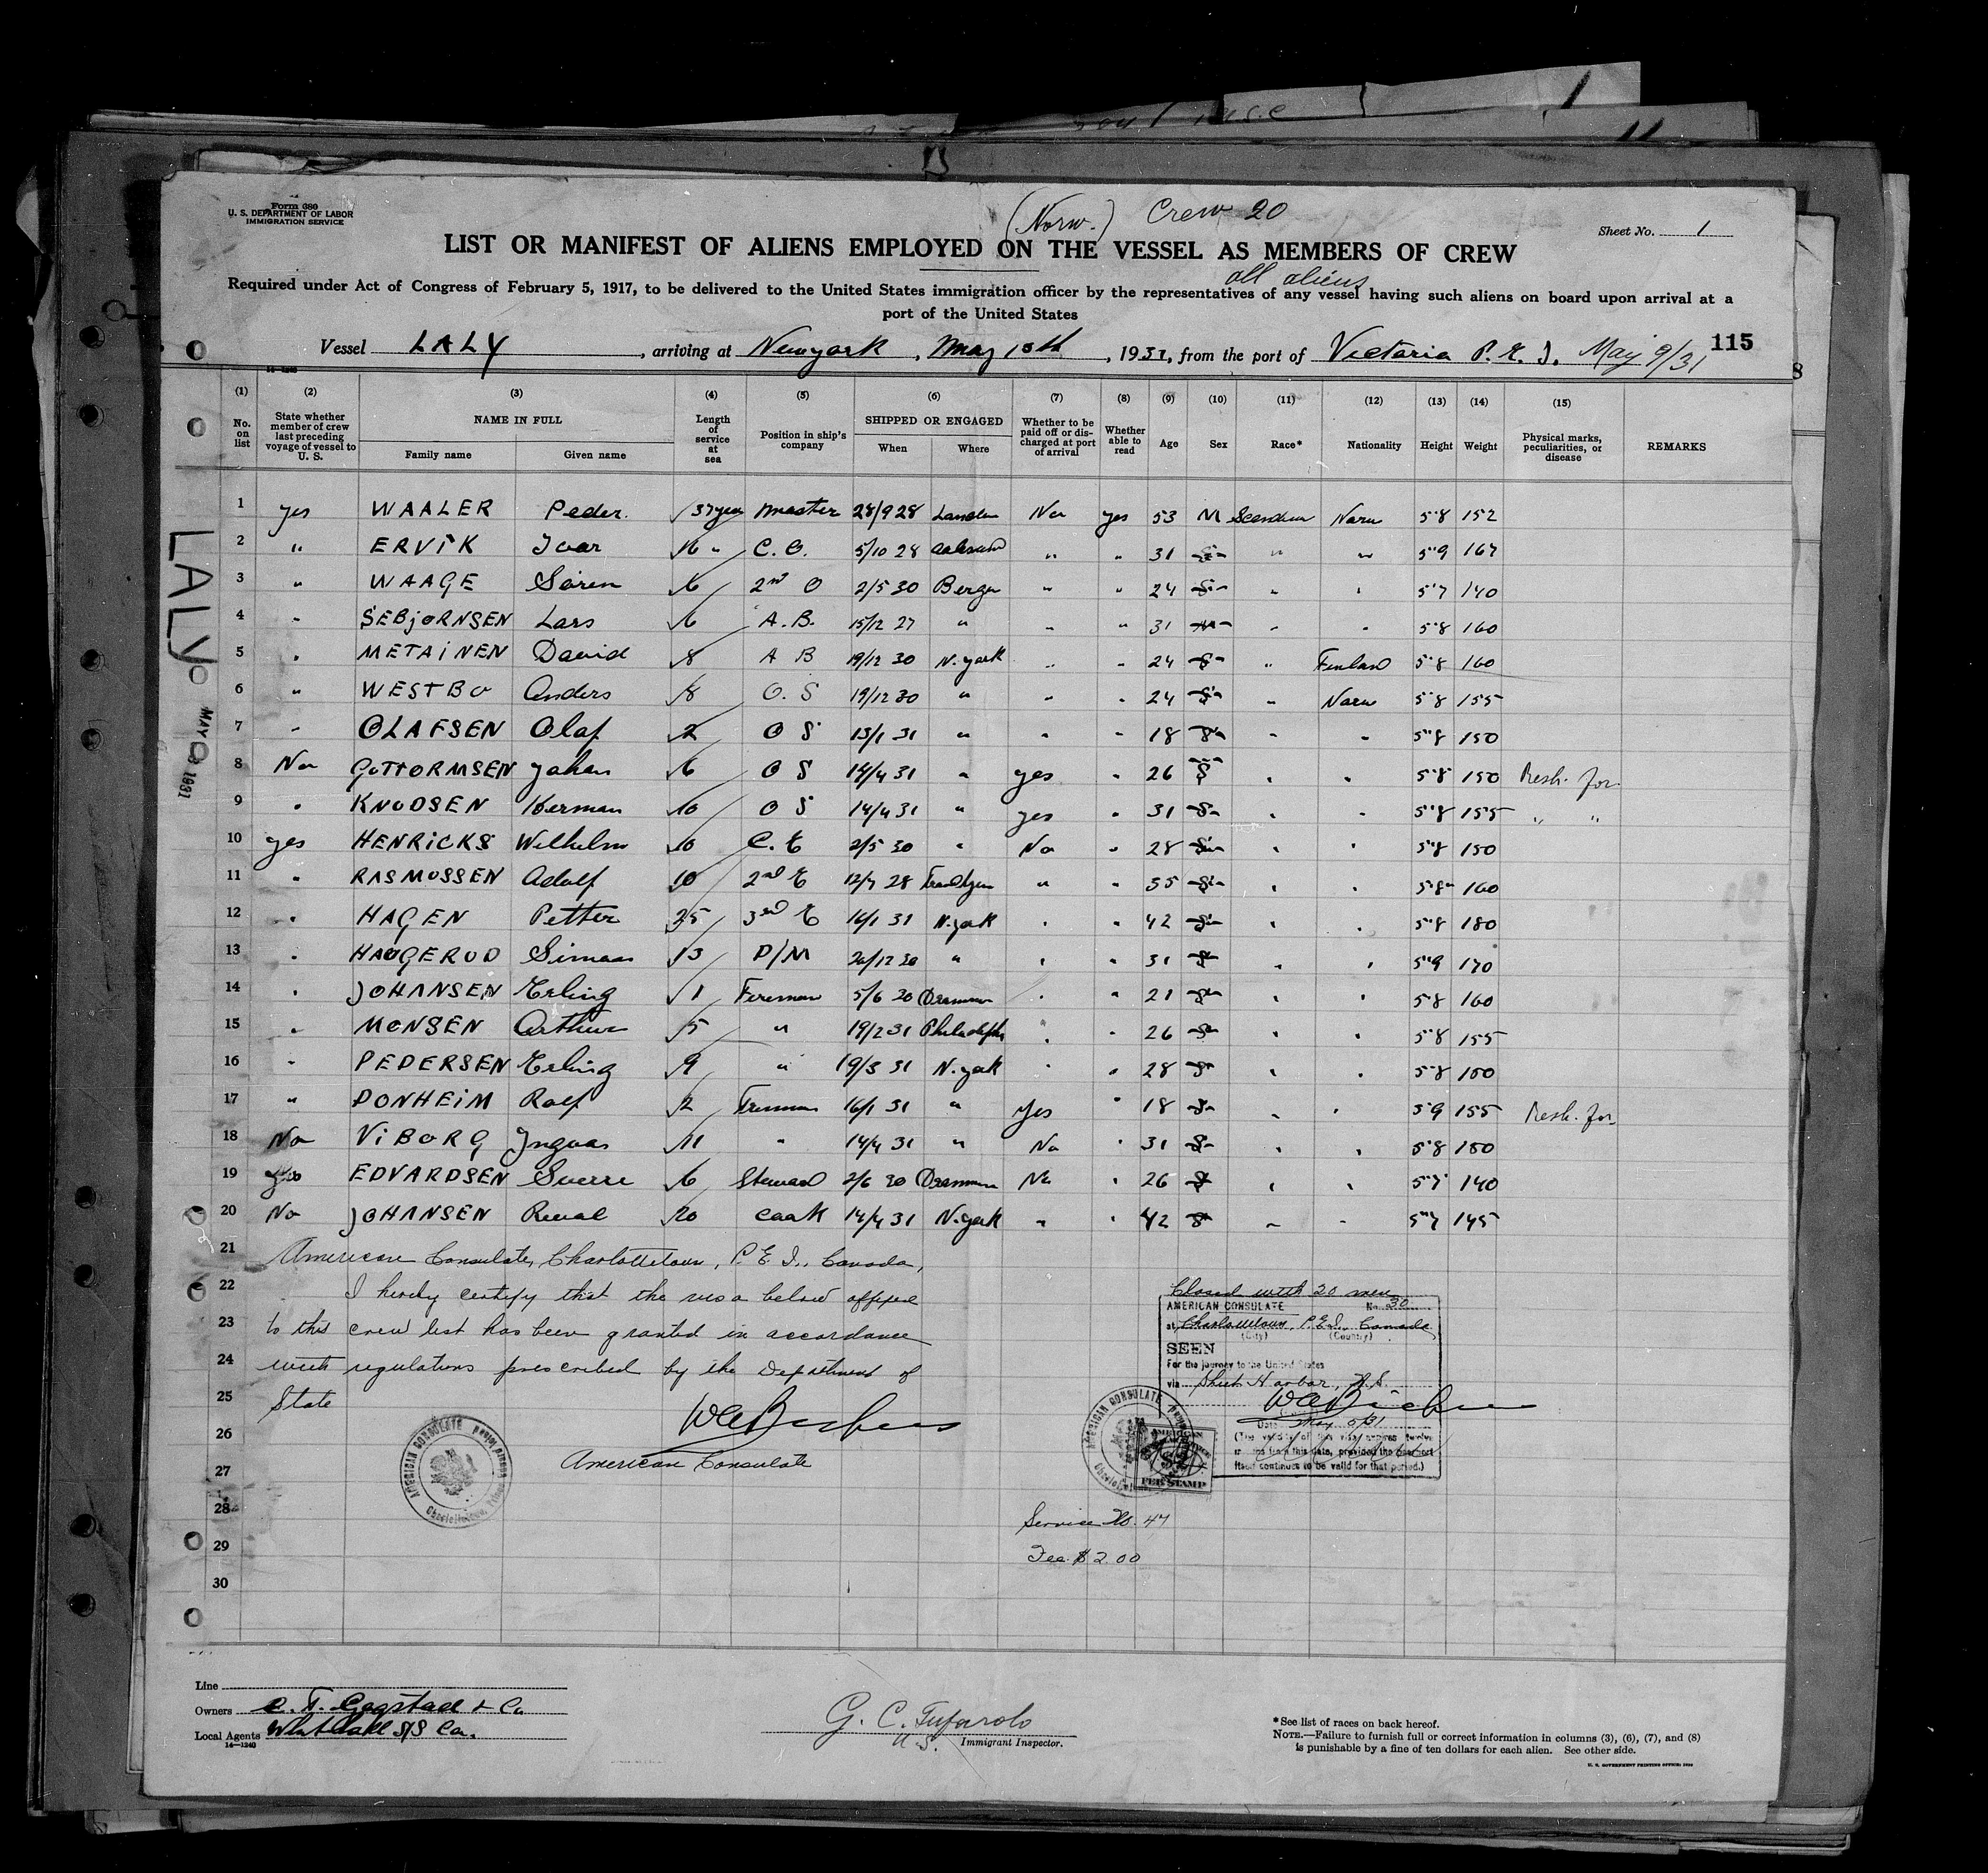 Form 680
U. S. DEPARTMENT OF LABOR
IMMIGRATION SERVICE
(Norw.) Crew 20
Sheet No. 1
LIST OR MANIFEST OF ALIENS EMPLOYED ON THE VESSEL AS MEMBERS OF CREW
all aliens
Required under Act of Congress of February 5, 1917, to be delivered to the United States immigration officer by the representatives of any vessel having such aliens on board upon arrival at a
port of the United States
Vessel LALY, arriving at Newyork, May 10th, 1931, from the port of Victoria P. E. I. May 9/31 115
14-1240
(1) (2) (3) (4) (5) (6) (7) (8) (9) (10) (11) (12) (13) (14) (15)
No. on list State whether member of crew last preceding voyage of vessel to U. S. NAME IN FULL Family name Given name Length of service at sea Position in ship's company SHIPPED OR ENGAGED When Where Whether to be paid off or discharged at port of arrival Whether able to read Age Sex Race* Nationality Height Weight Physical marks, peculiarities, or disease REMARKS
1 yes WAALER Peder. 37 year Master 28/9 28 London No yes 53 M Norw 5"8 152
2 " ERVIK Ivar 16 " C. O. 5/10 28 " " 31 " " 5"9 167
3 " WAAGE Sören 6 2nd O 2/5 30 Bergen " " 24 " " 5"7 140
4 " SEBJORNSEN Lars 6 A. B. 15/12 27 " " " 31 " " 5"8 160
5 " METAINEN David 8 A B 19/12 30 N. york " " 24 " Finland 5"8 160
6 " WESTBO Anders 8 O. S 19/12 30 " " " 24 " Norw 5"8 155
7 " OLAFSEN Olaf 2 O S 13/1 31 " " " 18 " " 5"8 150
8 No GUTTORMSEN Johan 6 O S 14/4 31 " yes " 26 " " 5"8 150 Resh. for.
9 " KNUDSEN Herman 10 O S 14/4 31 " yes " 31 " " 5"8 155 " "
10 yes HENRICKS Wilhelm 10 C. E 2/5 30 " No " 28 " " 5"8 150
11 " RASMUSSEN Adolf 10 2nd E 12/7 28 " " 35 " " 5"8 160
12 " HAGEN Petter 25 3rd E 16/1 31 N. york " " 42 " " 5"8 180
13 " HAUGEROD Simon 13 D/M 20/12 30 " " " 31 " " 5"9 170
14 " JOHANSEN Erling 1 Fireman 5/6 30 Drammen " " 21 " " 5"8 160
15 " MONSEN Arthur 5 " 19/2 31 Philadelphi " " 26 " " 5"8 155
16 " PEDERSEN Erling 9 " 19/3 31 N. york " " 28 " " 5"8 150
17 " DONHEIM Rolf 2 16/1 31 " yes " 18 " " 5"9 155 Resh. for
18 No VIBORG Ingvar 11 " 14/4 31 " No " 31 " " 5"8 150
19 yes EDVARDSEN Sverre 6 Steward 2/6 30 Drammen No " 26 " " 5"7 140
20 No JOHANSEN 20 Cook 14/4 31 N. york " " 42 " " 5"7 145
21 American Consulate, Charlottetown, P. E. I., Canada,
22 I hereby certify that the visa below affixed
23 to this crew list has been granted in accordance
24 with regulations prescribed by the Department of
25 State
26
27 American Consulate
28
29
30
AMERICAN CONSULATE
LALY
MAY 1931
Closed with 20 men
AMERICAN CONSULATE No. 30
at Charlottetown, P.E.I., Canada
(City) (Country)
SEEN
For the journey to the United States
via Sheet Harbor, N.S.
Date May 5/31
(The validity of this visa expires twelve
months from this date, provided the passport
itself continues to be valid for that period.)
AMERICAN CONSULATE
FEE STAMP
Service No. 47
Fee $2.00
Line
Owners & Co
Local Agents Whitehall S/S Co.
14-1240
G. C. Tufarolo
U.S. Immigrant Inspector.
*See list of races on back hereof.
NOTE.—Failure to furnish full or correct information in columns (3), (6), (7), and (8)
is punishable by a fine of ten dollars for each alien. See other side.
U. S. GOVERNMENT PRINTING OFFICE: